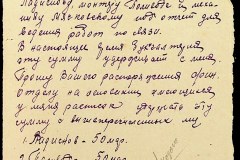 Ладисову, монтеру Полисве и меха-
нику Мясковскому под отчет для
ведения работ по связи.
В настоящее время бухгалтерия
эту сумму удерживает с меня.
Прошу Вашего распоряжения фин.
отделу на основании имеющихся
у меня расписок удержать эту
сумму с вышеперечисленных лиц
1. Ладисов - 50 мар.
50 мар.